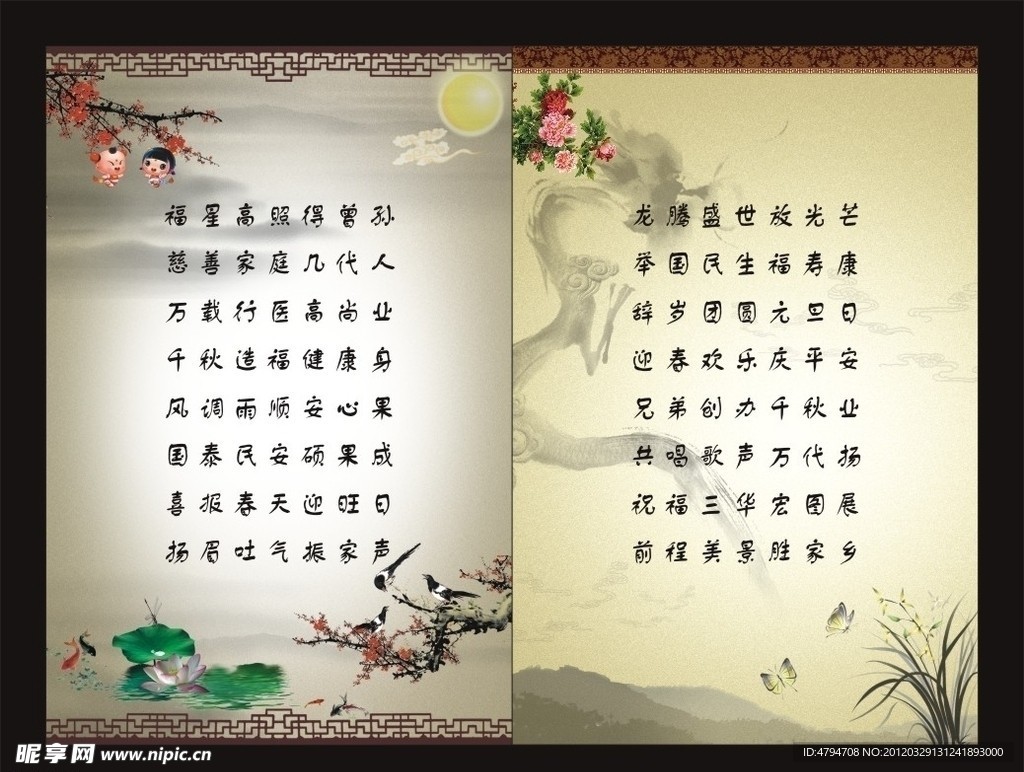 福星高照得曾孙
慈善家庭几代人
万载行医高尚业
千秋造福健康身
风调雨顺安心果
国泰民安硕果成
喜报春天迎旺日
扬眉吐气振家声
龙腾盛世放光芒
举国民生福寿康
辞岁团圆元旦日
迎春欢乐庆平安
兄弟创办千秋业
共唱歌声万代扬
祝福三华宏图展
前程美景胜家乡
昵享网 www.nipic.cn
ID:4794708 NO:20120329131241893000